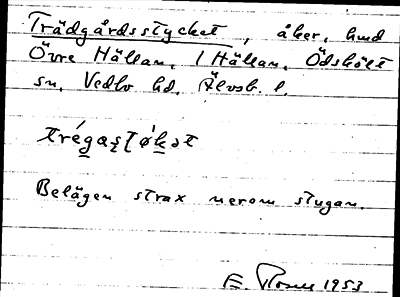 Trädgårdsstycket, åker, hmd
Övre Hällan, 1 Hällan, Ödskölt
sn, Vedbo hd, Älvsb. l.
Belägen strax nerom stugan.
E. 1953